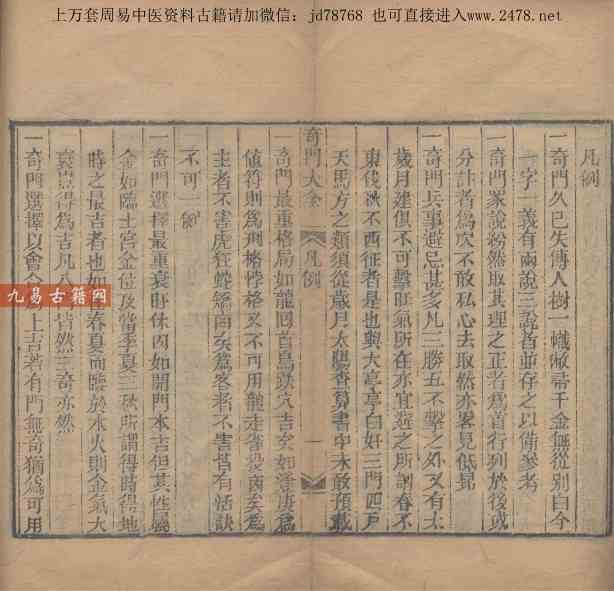 上万套周易中医资料古籍请加微信：jd78768 也可直接进入www.2478.net
凡例
一奇門久已失傳人樹一幟敝帚千金無從別白今
一字一義有兩說三說者並存之以備參考
一奇門家說紛然取其理之正者為首行列於後或
分註者為次不敢私心去取然亦畧見低昂
一奇門兵事避忌甚多凡三勝五不擊之外又有太
歲月建俱不可擊旺氣所在亦宜避之所謂春不
東伐秋不西征者是也與大亭亭白奸三門四戶
天馬方之類須從歲月太陽查算書中未敢預載
奇門大全
凡例
一
一奇門最重格局如龍回首鳥跌穴吉矣如落庚為
值符則為刑格悖格又不可用龍走雀投凶矣為
主者不害虎狂蛇矯凶矣為客者不害皆有活訣
不可一例
一奇門選擇最重衰旺休囚如開門本吉但其性屬
金如臨土宮金位及當季夏三秋所謂得時得地
時之最吉者也如春夏而臨於木火則金氣大
衰豈得為吉凡八皆然三奇亦然
一奇門選擇以會合上吉若有門無奇猶為可用
九易古籍网